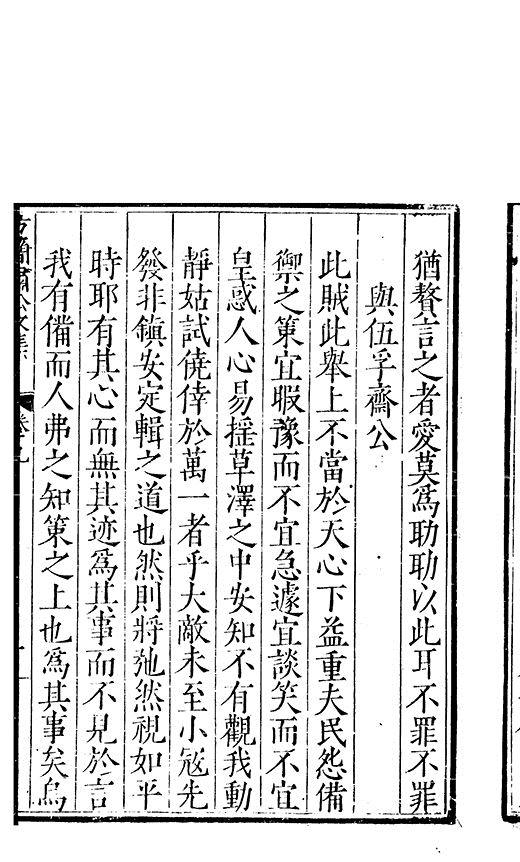 猶瞀言之者愛莫爲助助以此耳不罪不罪
與伍孚齋公
此賊此舉上不當於天心下益重夫民怨備
禦之策宜暇豫而不宜急遽宜談笑而不宜
皇惑人心易揺草澤之中安知不有觀我動
靜姑試僥倖於萬一者乎大敵未至小宼先
發非鎭安定輯之道也然則將弛然視如平
時耶有其心而無其迹爲其事而不見於言
我有備而人弗之知策之上也爲其事矣烏
方簡肅公文集
卷十九